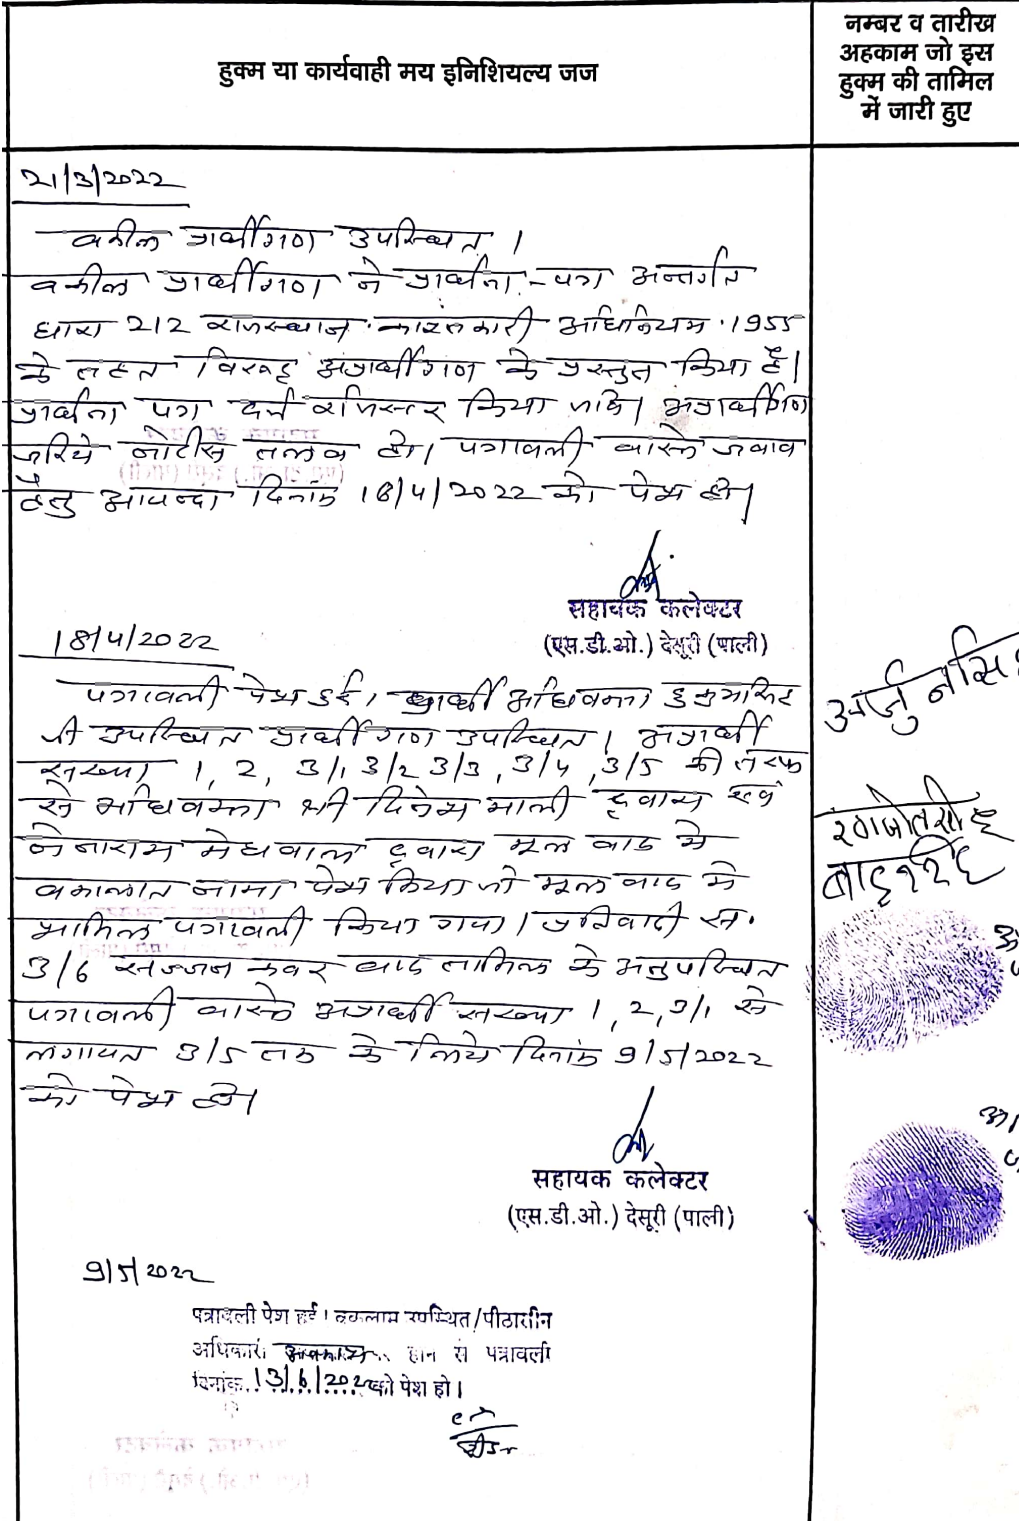 हुक्म या कार्यवाही मय इनिशियल्य जज
नम्बर व तारीख
अहकाम जो इस
हुक्म की तामिल
में जारी हुए
21/3/2022
वकील प्रार्थीगण उपस्थित ।
वकील प्रार्थीगण ने प्रार्थना-पत्र अन्तर्गत
धारा 212 राजस्थान काश्तकारी अधिनियम 1955
के तहत विरूद्ध अप्रार्थीगण के प्रस्तुत किया है।
प्रार्थना पत्र दर्ज रजिस्टर किया जावे। अप्रार्थीगण
जरिये नोटीस तलब हो। पत्रावली वास्ते जवाब
हेतु आयन्दा दिनांक 18/4/2022 को पेश हो।
सहायक कलेक्टर
(एस.डी.ओ.) देसूरी (पाली)
18/4/2022
पत्रावली पेश हुई। प्रार्थी अधिवक्ता
जी उपस्थित प्रार्थीगण उपस्थित। अप्रार्थी
संख्या 1, 2, 3/1 3/2 3/3, 3/4, 3/5 की तरफ
से अधिवक्ता श्री दिनेश माली द्वारा एवं
नेनाराम मेघवाल द्वारा मूल वाद मे
वकालात नामा पेश किया जो मूल वाद मे
शामिल पत्रावली किया गया। प्रतिवादी स.
3/6 सज्जन कवर बाद तामिल के अनुपस्थित
पत्रावली वास्ते अप्रार्थी संख्या 1, 2, 3/1 से
लगायत 3/5 तक के लिये दिनांक 9/5/2022
को पेश हो।
सहायक कलेक्टर
(एस.डी.ओ.) देसूरी (पाली)
अर्जुनसिं
9/5/2022
पत्रावली पेश हुई। वकलाम उपस्थित/पीठासीन
अधिकारी अवकाश होने से पत्रावली
दिनांक 13/6/2022 को पेश हो।